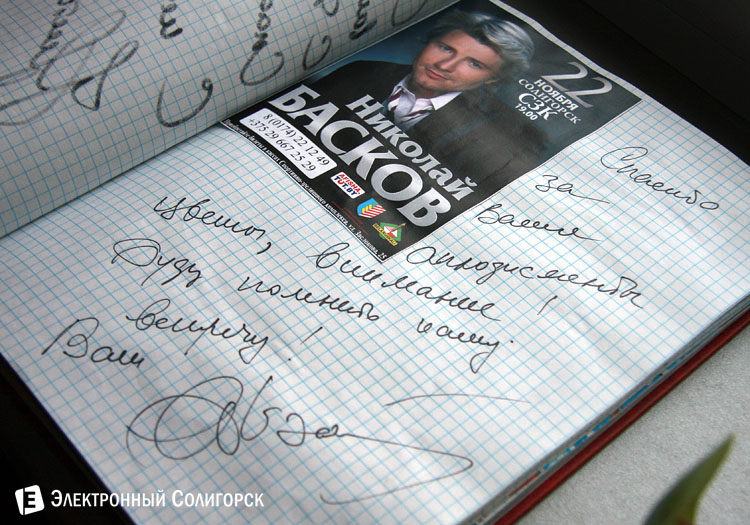 22
НОЯБРЯ
СОЛИГОРСК
СЗК
19.00
НИКОЛАЙ
БАСКОВ
8 (0174) 22 12 49
+375 29 667 25 29
АФИША
TUT.BY
Спасибо
за
Ваши
цветы, внимание! аплодисменты
Буду помнить нашу
встречу!
Ваш
Е ЭЛЕКТРОННЫЙ СОЛИГОРСК